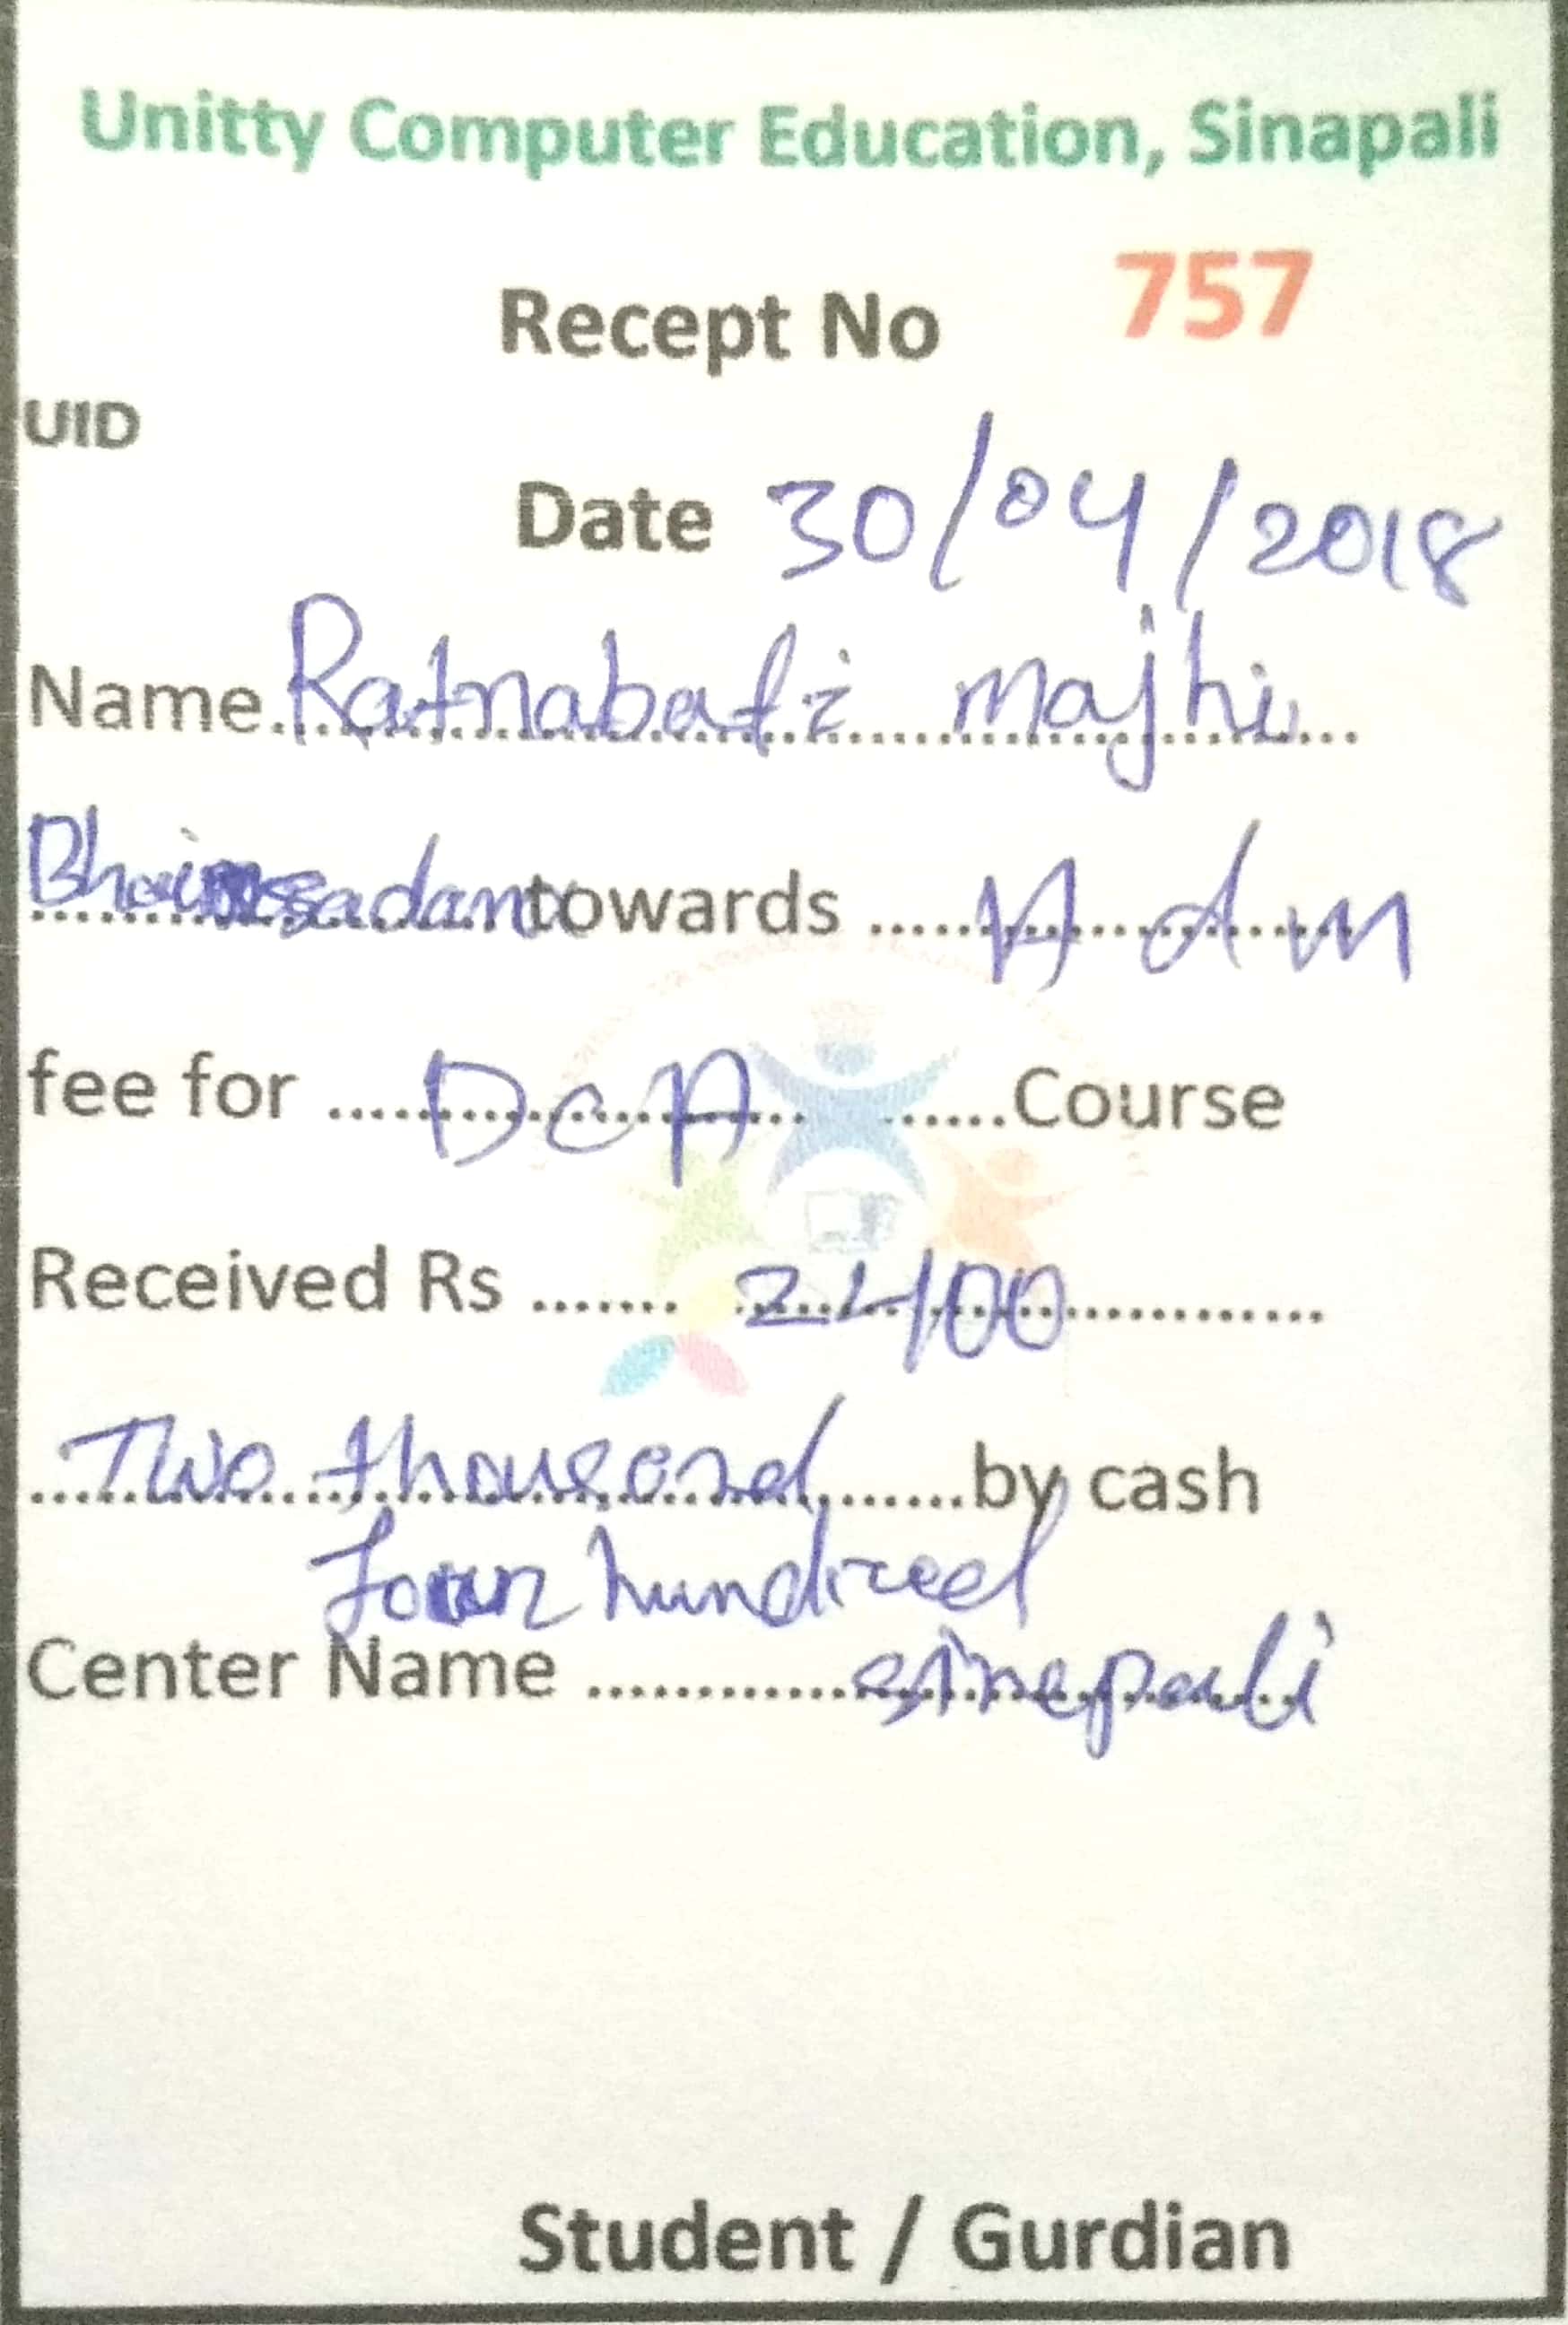 Unitty Computer Education, Sinapali
Recept No 757
UID
Date 30/04/2018
Name Ratnabati majhi
towards Adm
fee for DCA Course
Received Rs 2400
Two thousand by cash
Four hundred
Center Name sinepali
Student / Gurdian